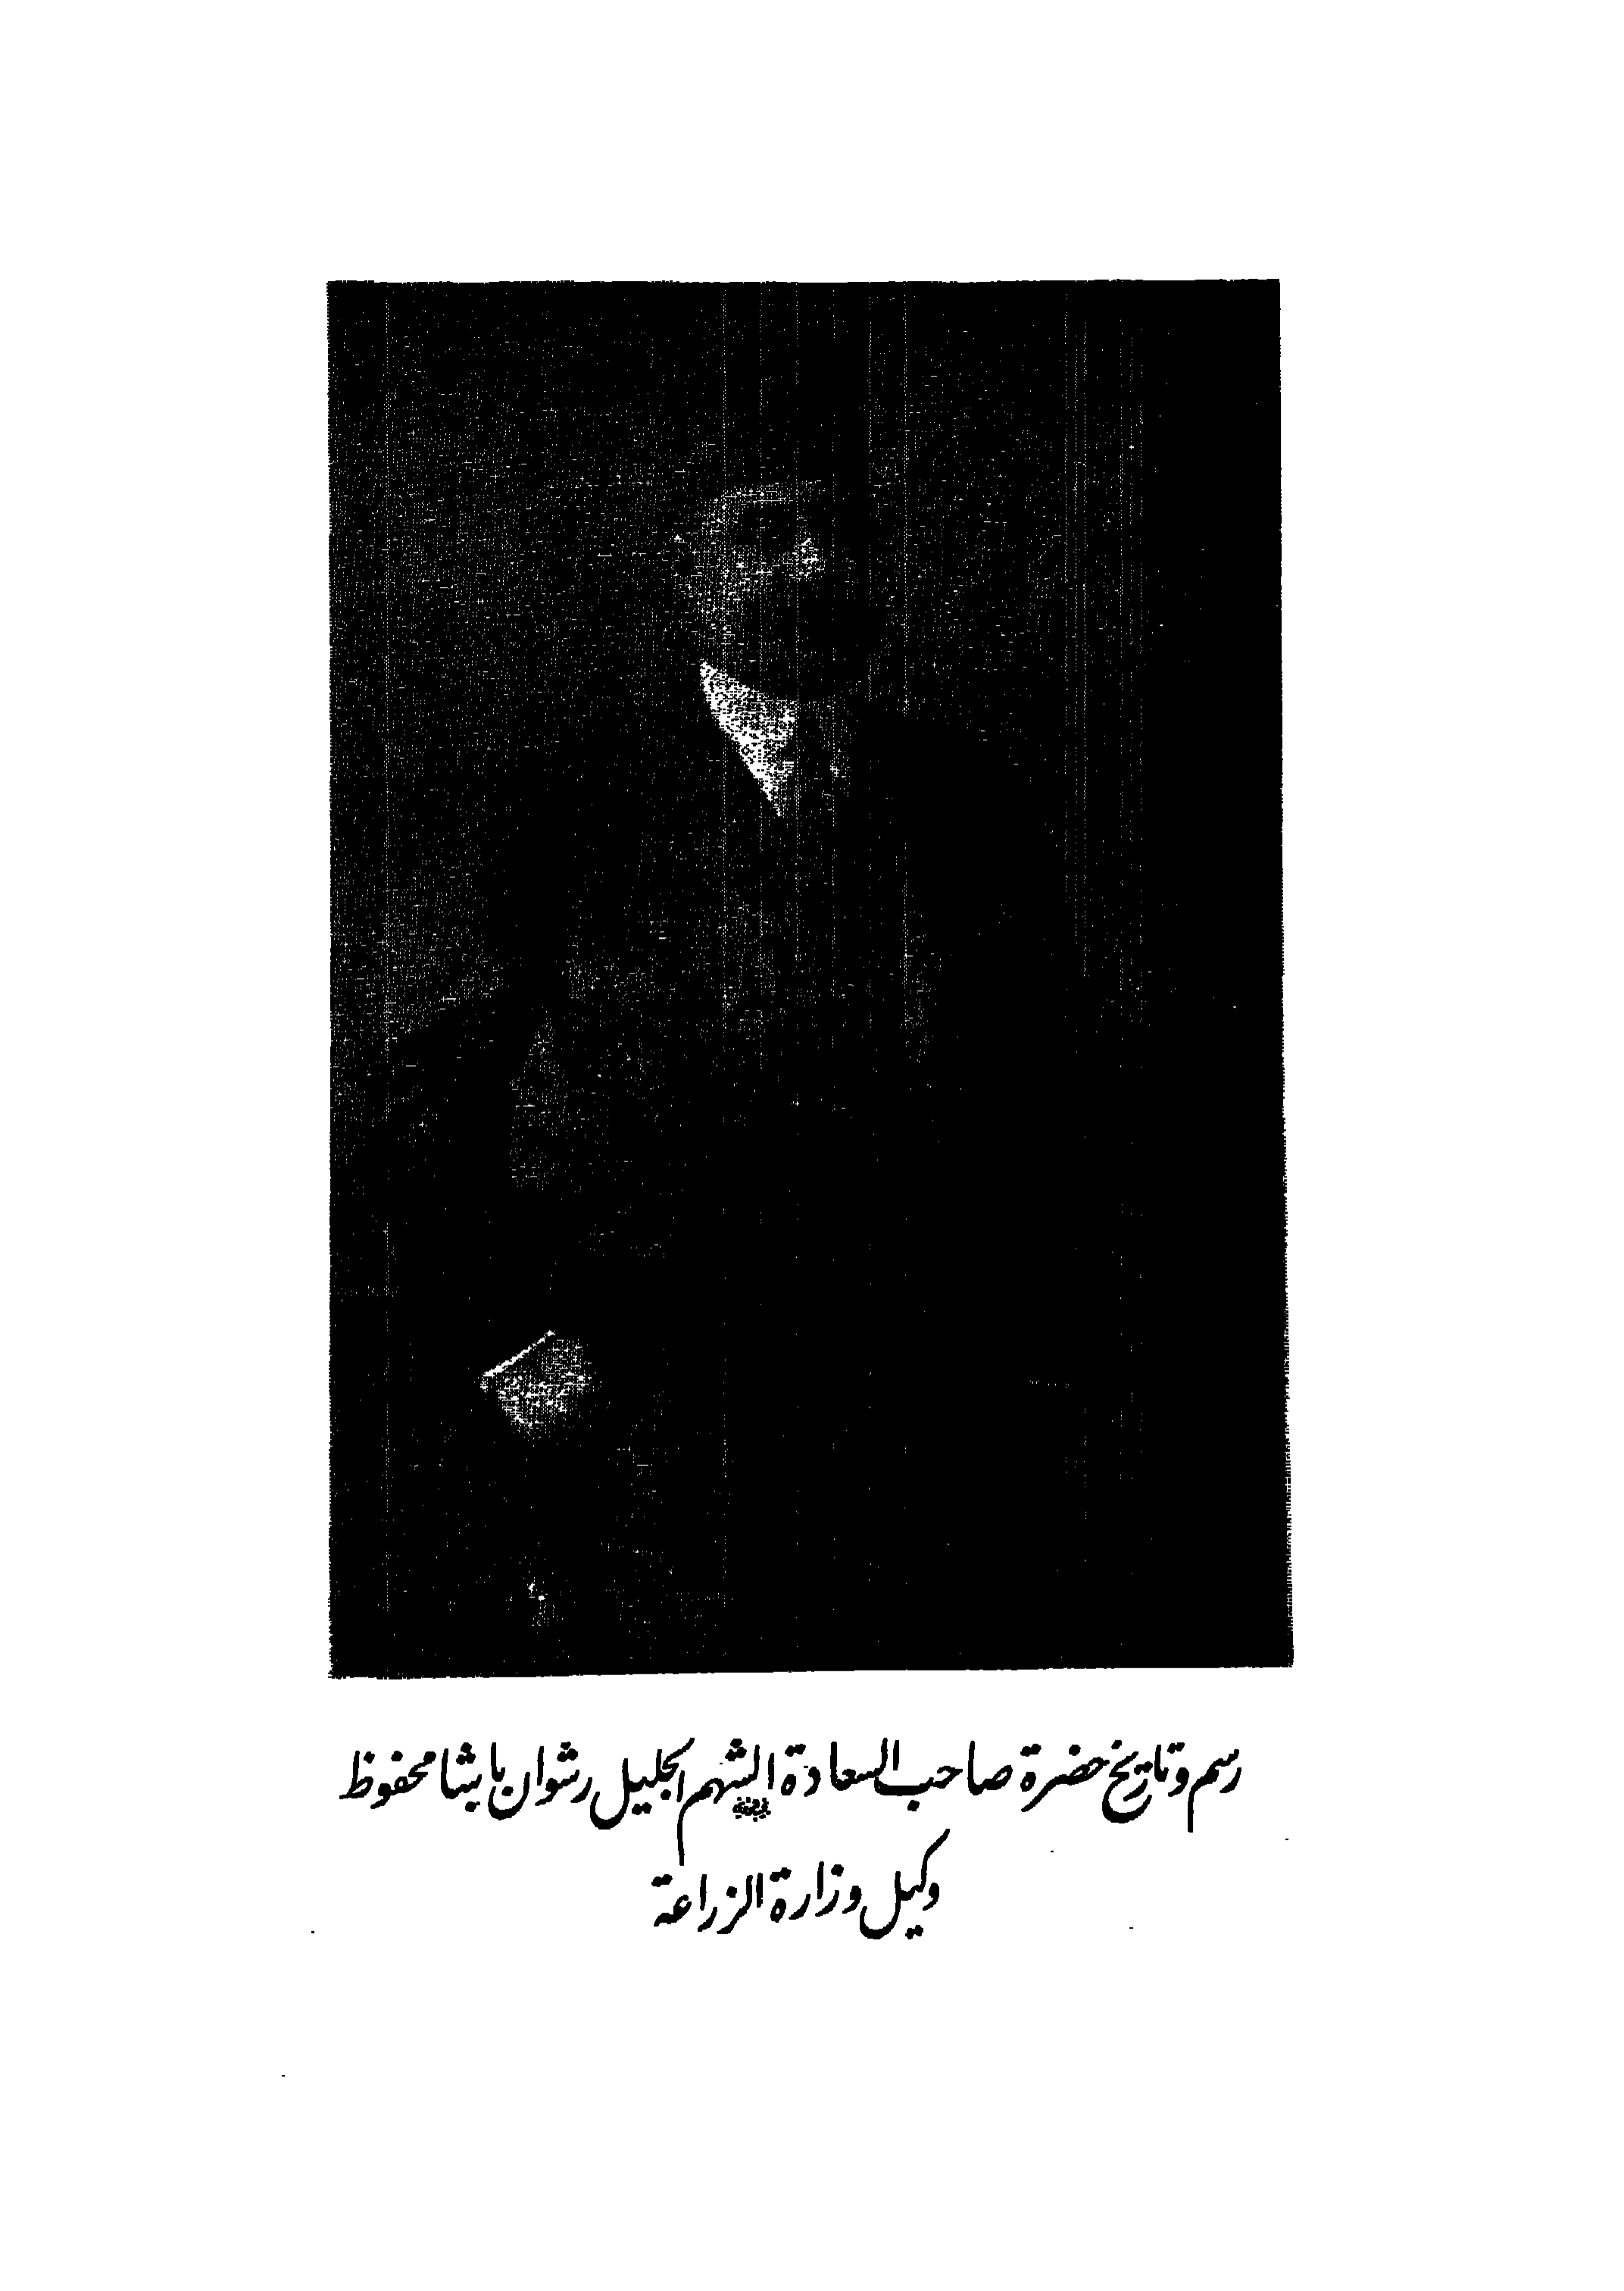 رسم وتاريخ حضرة صاحب السعادة الشهم الجليل رشوان باشا محفوظ
وكيل وزارة الزراعة